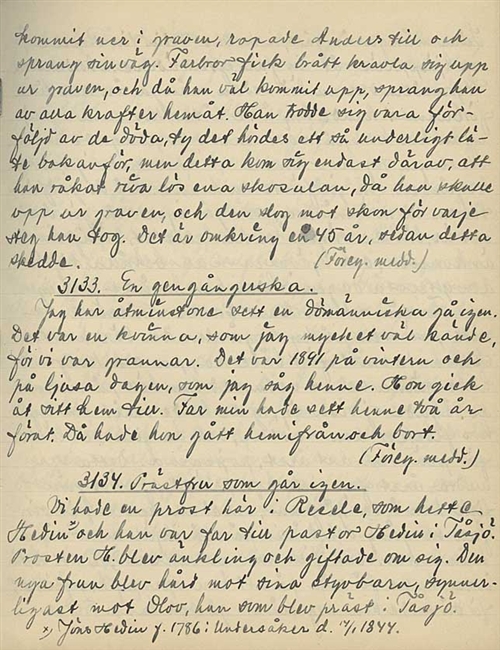 kommit ner i graven, ropade Anders till och
sprang sin väg. Farbror fick brått kravla sig upp
ur graven, och då han väl kommit upp, sprang han
av alla krafter hemåt. Han trodde sig vara för-
följd av de döda, ty det hördes ett så underligt lä-
te bakanför, men detta kom sig endast därav, att
han råkat riva lös ena skosulan, då han skulle
upp ur graven, och den slog mot skon för varje
steg han tog. Det är omkring en 45 år, sedan detta
skedde. (Föreg. medd.)
3133. En gengångerska.
Jag har åtminstone sett en dömänniska gå igen.
Det var en kvinna, som jag mycket väl kände,
för vi var grannar. Det var 1891 på vintern och
på ljusa dagen, som jag såg henne. Hon gick
åt sitt hem till. Far min hade sett henne två år
förut. Då hade hon gått hemifrån och bort.
(Föreg. medd.)
3134. Prästfru som går igen.
Vi hade en prost här i Resele, som hette
Hedin x) och han var far till pastor Hedin i Tåsjö.
Prosten H. blev änkling och giftade om sig. Den
nya frun blev hård mot sina styvbarn, synner-
ligast mot Olov, han som blev präst i Tåsjö.
x) Jöns Hedin f. 1786 i Undersåker d. 1844.